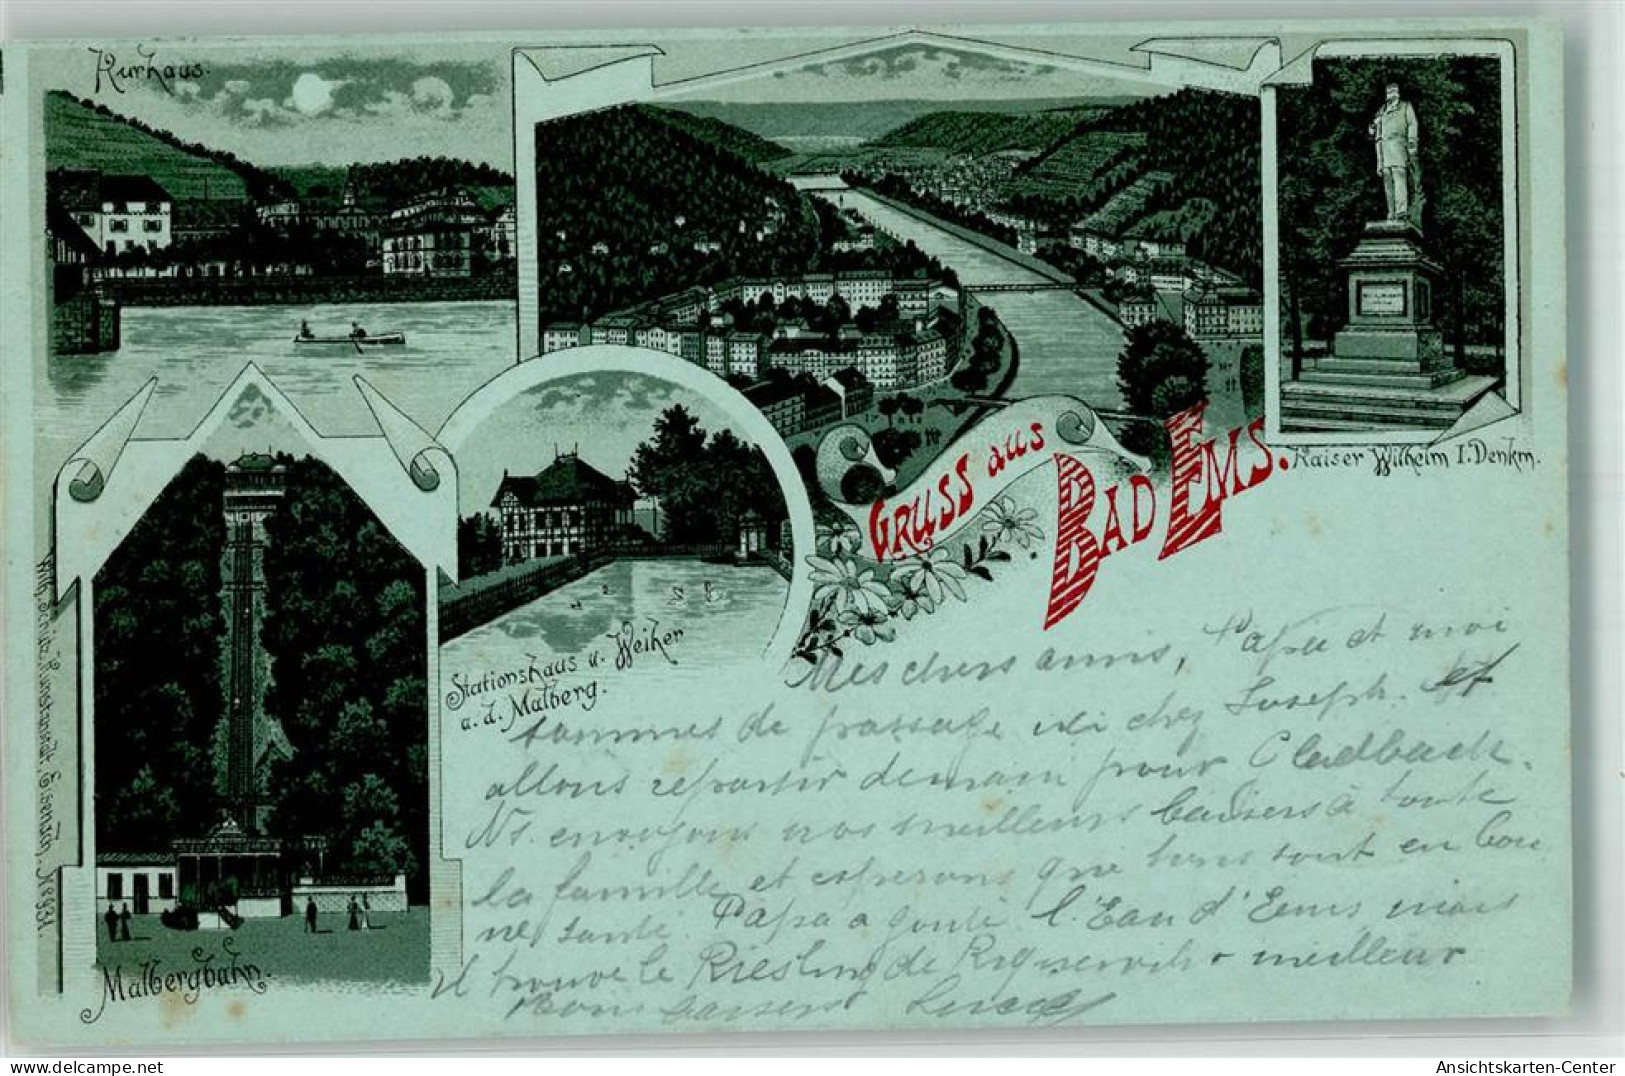 Kurhaus.
Kaiser Wilhelm I. Denkm.
GRUSS aus
BAD EMS.
Stationshaus u. Weiher
a. d. Malberg.
Malbergbahn.
Kunstanstalt, Eisenach,
Mes chers amis, Papa et moi
sommes de passage ici chez Joseph. et
allons repartir demain pour Gladbach.
Ns. envoyons nos meilleurs baisers à toute
la famille et esperons que tous sont en bon
ne santé. Papa a gouté l'Eau d'Ems, mais
il trouve le Riesling de meilleur
Bons baisers
Ansichtskarten-Center
AnsichtsKarten-Center.com